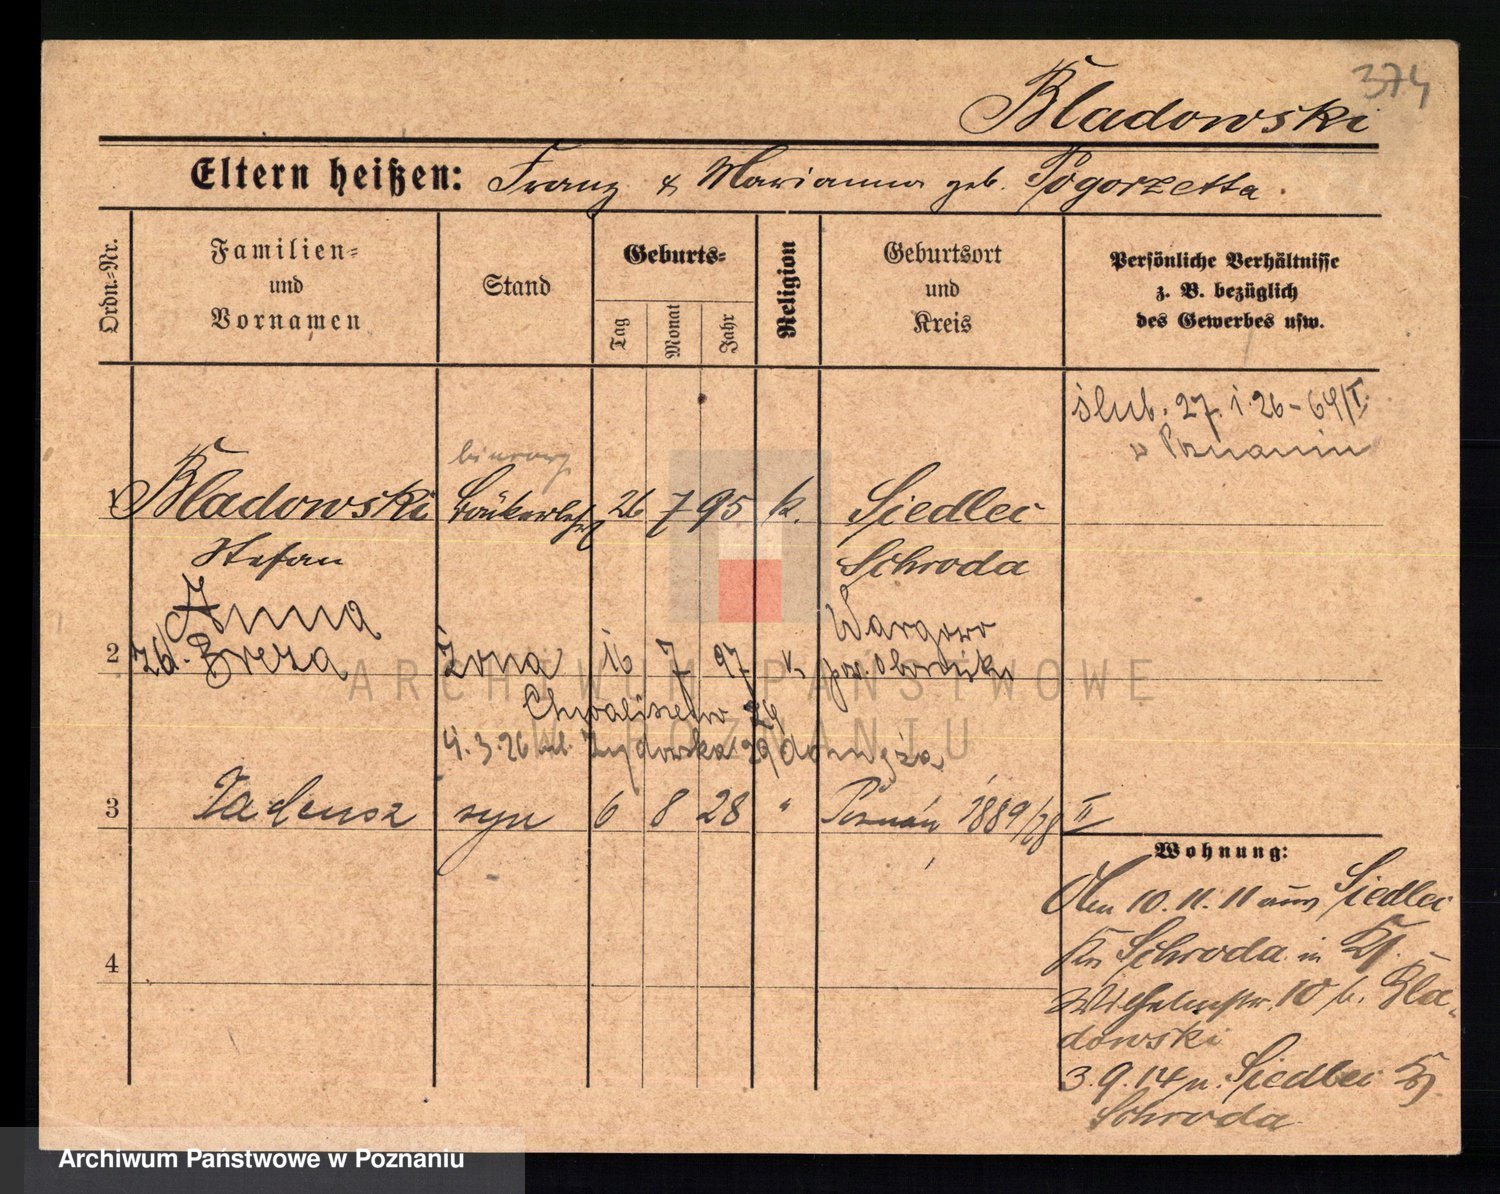 374
Bladowski
Eltern heißen: Franz & Marianna geb. Pogorzetta.
Ordn.-Nr.
Familien- und Vornamen
Stand
Geburts-
Tag
Monat
Jahr
Religion
Geburtsort und Kreis
Persönliche Verhältnisse z. B. bezüglich des Gewerbes usw.
ślub. 27. 1. 26 - 64/I.
w Poznaniu
1 Bladowski 26 7 95 k. Siedlec
Stefan Schroda
Anna Wargowo
2 zd. Breza żona 16 7 97 k. pow. Oborniki
Chwaliszewo 24
4.3.26 Żydowska 29
3 Tadeusz syn 6 8 28 " Poznań 1889/28 II
4
Wohnung:
Am 10.11.11 aus Siedlec
Krs Schroda in
Wilhelmstr. 10 b. Bla-
dowski
3.9.14 n. Siedlec
Schroda
ARCHIWUM PAŃSTWOWE
W POZNANIU
Archiwum Państwowe w Poznaniu